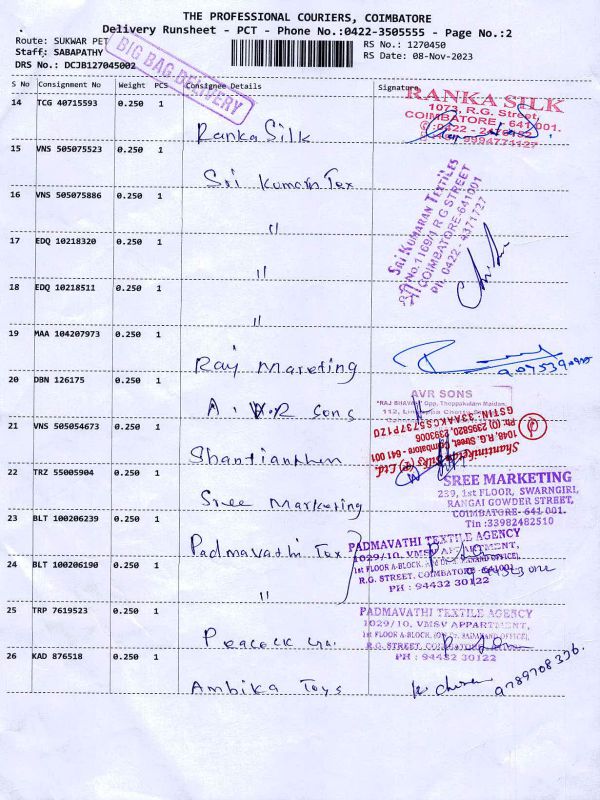 THE PROFESSIONAL COURIERS, COIMBATORE
Delivery Runsheet - PCT - Phone No.:0422-3505555 - Page No.:2
Route: SUKWAR PET
RS No.: 1270450
Staff: SABAPATHY
RS Date: 08-Nov-2023
DRS No.: DCJB127045002
BIG BAG DELIVERY
S No Consignment No Weight PCS Consignee Details Signature
14 TCG 40715593 0.250 1 Ranka Silk
RANKA SILK
1073, R.G. Street,
COIMBATORE - 641 001.
15 VNS 505075523 0.250 1 Sri Kumaran Tex
16 VNS 505075886 0.250 1 "
17 EDQ 10218320 0.250 1 "
18 EDQ 10218511 0.250 1 "
SRI KUMARAN TEXTILES
No.1169/1 R G STREET
COIMBATORE-641001
PH. 0422 - 4371727
19 MAA 104207973 0.250 1 Raj Mareting
20 DBN 126175 0.250 1 A.V.R Sons
AVR SONS
21 VNS 505054673 0.250 1
Shantiniketan Silks (P) Ltd.
1048, R.G. Street, Coimbatore - 641 001
Ph: (O) 2395820, 2393006
GSTIN: 33AAKCS5737P1Z0
22 TRZ 55005904 0.250 1 Sree Marketing
SREE MARKETING
239, 1st FLOOR, SWARNGIRI,
RANGAI GOWDER STREET,
COIMBATORE- 641 001.
Tin :33982482510
23 BLT 100206239 0.250 1 Padmavathi Tex
24 BLT 100206190 0.250 1 "
PADMAVATHI TEXTILE AGENCY
1029/10, VMSV APPARTMENT,
R.G. STREET, COIMBATORE - 641001
PH : 94432 30122
25 TRP 7619523 0.250 1 Peacock
PADMAVATHI TEXTILE AGENCY
1029/10, VMSV APPARTMENT,
PH : 94432 30122
26 KAD 876518 0.250 1 Ambika Toys
9789708336.